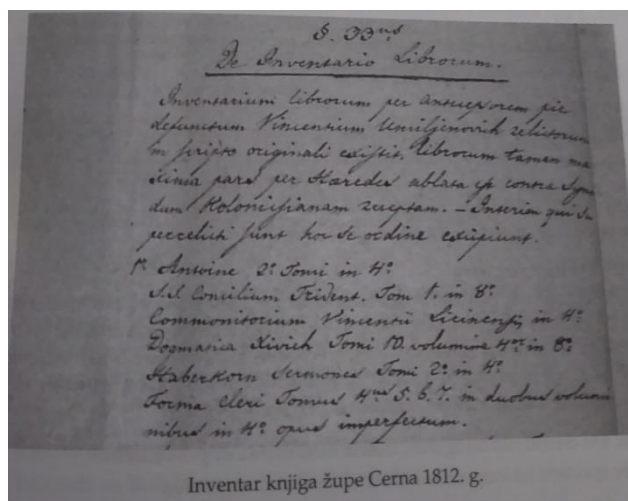 §. 33us
De Inventario Librorum.
Inventarium librorum per Antecessorem pie
defunctum Vincentium Umiljenovich relictorum
in scripto originali existit, librorum tamen ma
xima pars per Haeredes ablata est contra Syno
dum Kolonicsianam receptam. – Interim qui su
sunt hoc se ordine
1o Antoine 2o Tomi in 4o
S.S. Concilium Trident. Tom 1. in 8o
Commonitorium Vincentii in 4o
Dogmatica Tomi 10. volumina in 8o
Haberkorn Sermones Tomi 2o in 4o
Forma cleri Tomus 4us 5. 6. 7. in duobus volumi
nibus in 4o opus imperfectum.
Inventar knjiga župe Cerna 1812. g.